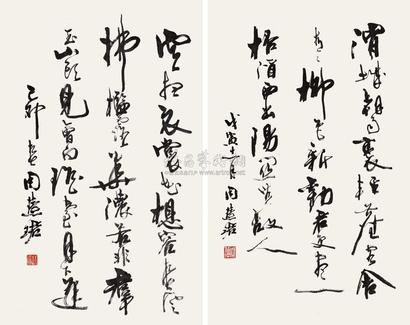 渭城朝雨裛輕塵客舍
青々柳色新勸君更盡一
杯酒西出陽關無故人
戊寅十一月周慧珺
雲想衣裳花想容春風
拂檻露華濃若非羣
玉山頭見會向瑶臺月下逢
己卯春周慧珺